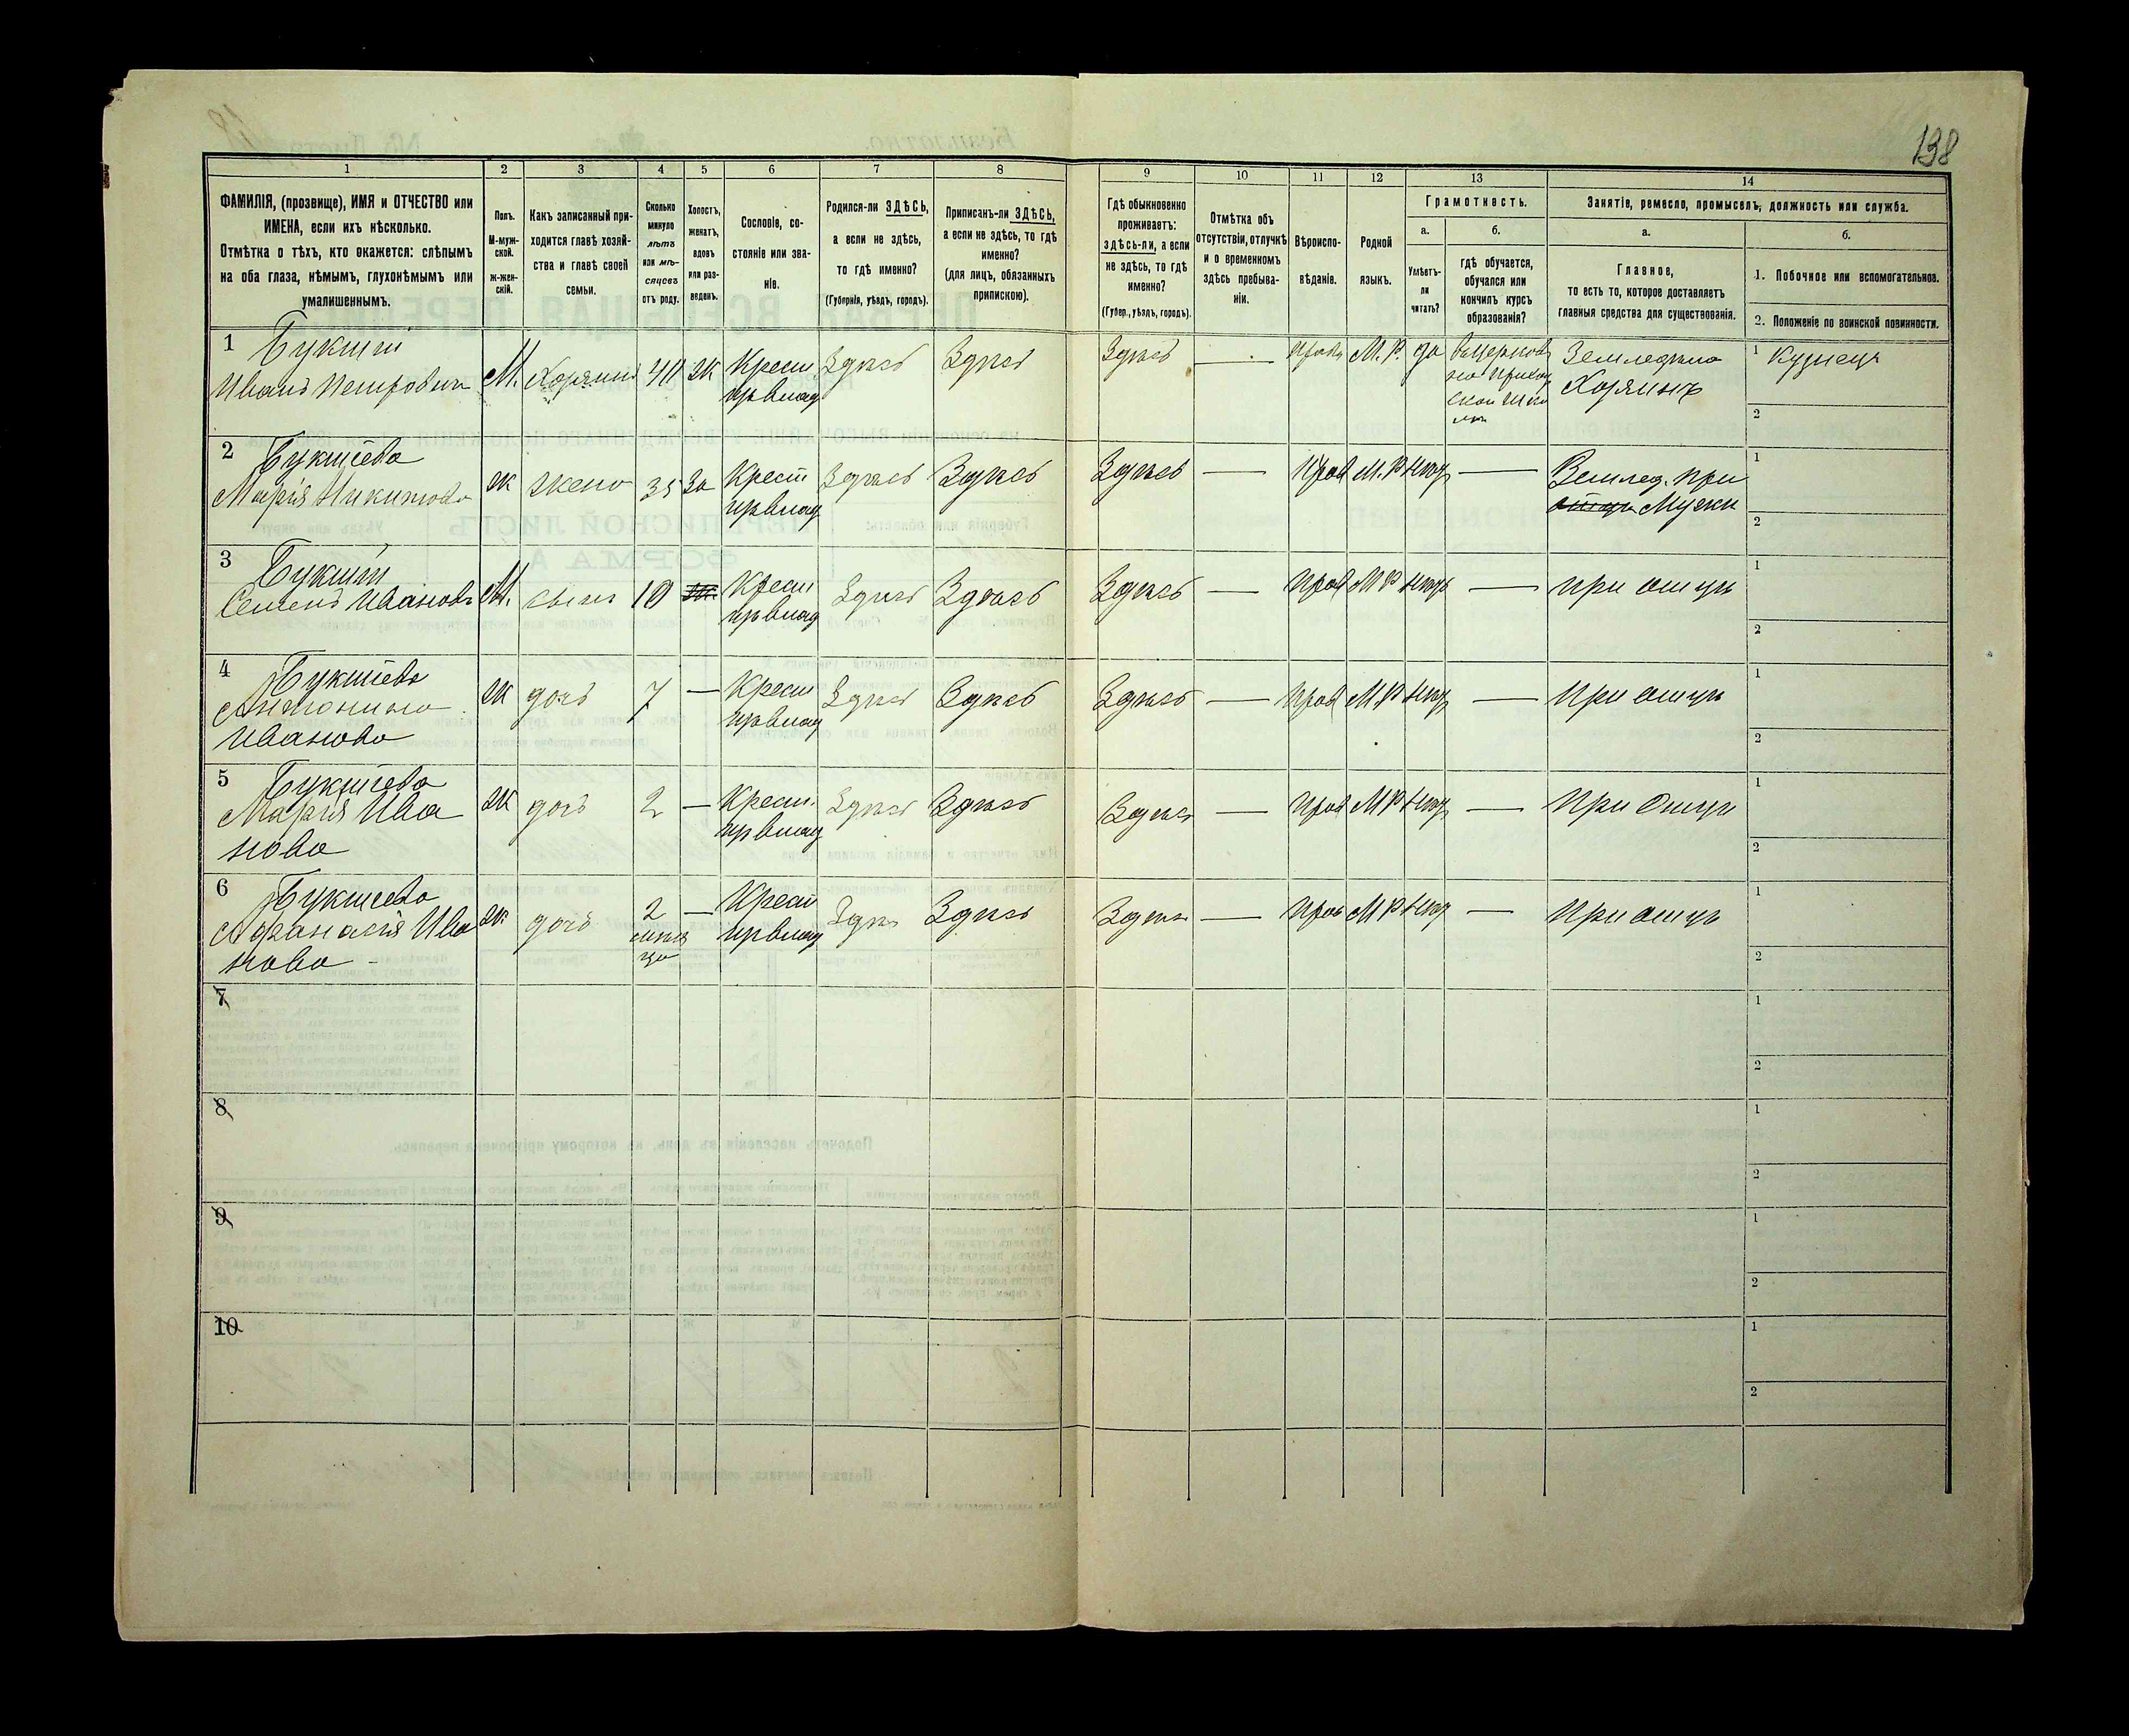 138
1 2 3 4 5 6 7 8 9 10 11 12 13 14
ФАМИЛІЯ, (прозвище), ИМЯ и ОТЧЕСТВО или
ИМЕНА, если ихъ нѣсколько.
Отмѣтка о тѣхъ, кто окажется: слѣпымъ
на оба глаза, нѣмымъ, глухонѣмымъ или
умалишеннымъ.
Полъ.
М-муж-
ской.
ж-жен-
скій.
Какъ записанный при-
ходится главѣ хозяй-
ства и главѣ своей
семьи.
Сколько
минуло
лѣтъ
или мѣ-
сяцевъ
отъ роду.
Холостъ,
женатъ,
вдовъ
или раз-
веденъ.
Сословіе, со-
стояніе или зва-
ніе.
Родился-ли ЗДѢСЬ,
а если не здѣсь,
то гдѣ именно?
(Губернія, уѣздъ, городъ).
Приписанъ-ли ЗДѢСЬ,
а если не здѣсь, то гдѣ
именно?
(для лицъ, обязанныхъ
припискою).
Гдѣ обыкновенно
проживаетъ:
здѣсь-ли, а если
не здѣсь, то гдѣ
именно?
(Губер., уѣздъ, городъ).
Отмѣтка объ
отсутствіи, отлучкѣ
и о временномъ
здѣсь пребыва-
ніи.
Вѣроиспо-
вѣданіе.
Родной
языкъ.
Грамотность.
а.
Умѣетъ-
ли
читать?
б.
гдѣ обучается,
обучался или
кончилъ курсъ
образованія?
Занятіе, ремесло, промыселъ, должность или служба.
а.
Главное,
то есть то, которое доставляетъ
главныя средства для существованія.
б.
1. Побочное или вспомогательное.
2. Положеніе по воинской повинности.
1 Букшій
Иванъ Петровичъ М. Хозяинъ 40 Ж Крест Здѣсь Здѣсь Здѣсь — Прав М.Р. да Въ церков
но приход
ской шко
лѣ
Земледѣліе
Хозяинъ
1 Кузнецъ
2
2 Букшіева
Марія Никитова Ж жена 35 За Крест Здѣсь Здѣсь Здѣсь — Прав М.Р нѣтъ — Землед. при
мужи
1
2
3 Букшій
Семенъ Ивановъ М. сынъ 10 Крест Здѣсь Здѣсь Здѣсь — Прав М Р нѣтъ — при отцѣ
1
2
4 Букшіева
Антонина
Иванова Ж дочь 7 — Крест Здѣсь Здѣсь Здѣсь — Прав М.Р нѣтъ — При отцѣ
1
2
5 Букшіева
Марія Ива
нова Ж дочь 2 — Крест. Здѣсь Здѣсь Здѣсь — Прав М Р нѣтъ — При отцѣ
1
2
6 Букшева
Афанасія Ива
нова Ж дочь 2
мѣся
ца — Крест Здѣсь Здѣсь Здѣсь — Прав М Р нѣтъ — При отцѣ
1
2
7
1
2
8
1
2
9
1
2
10
1
2